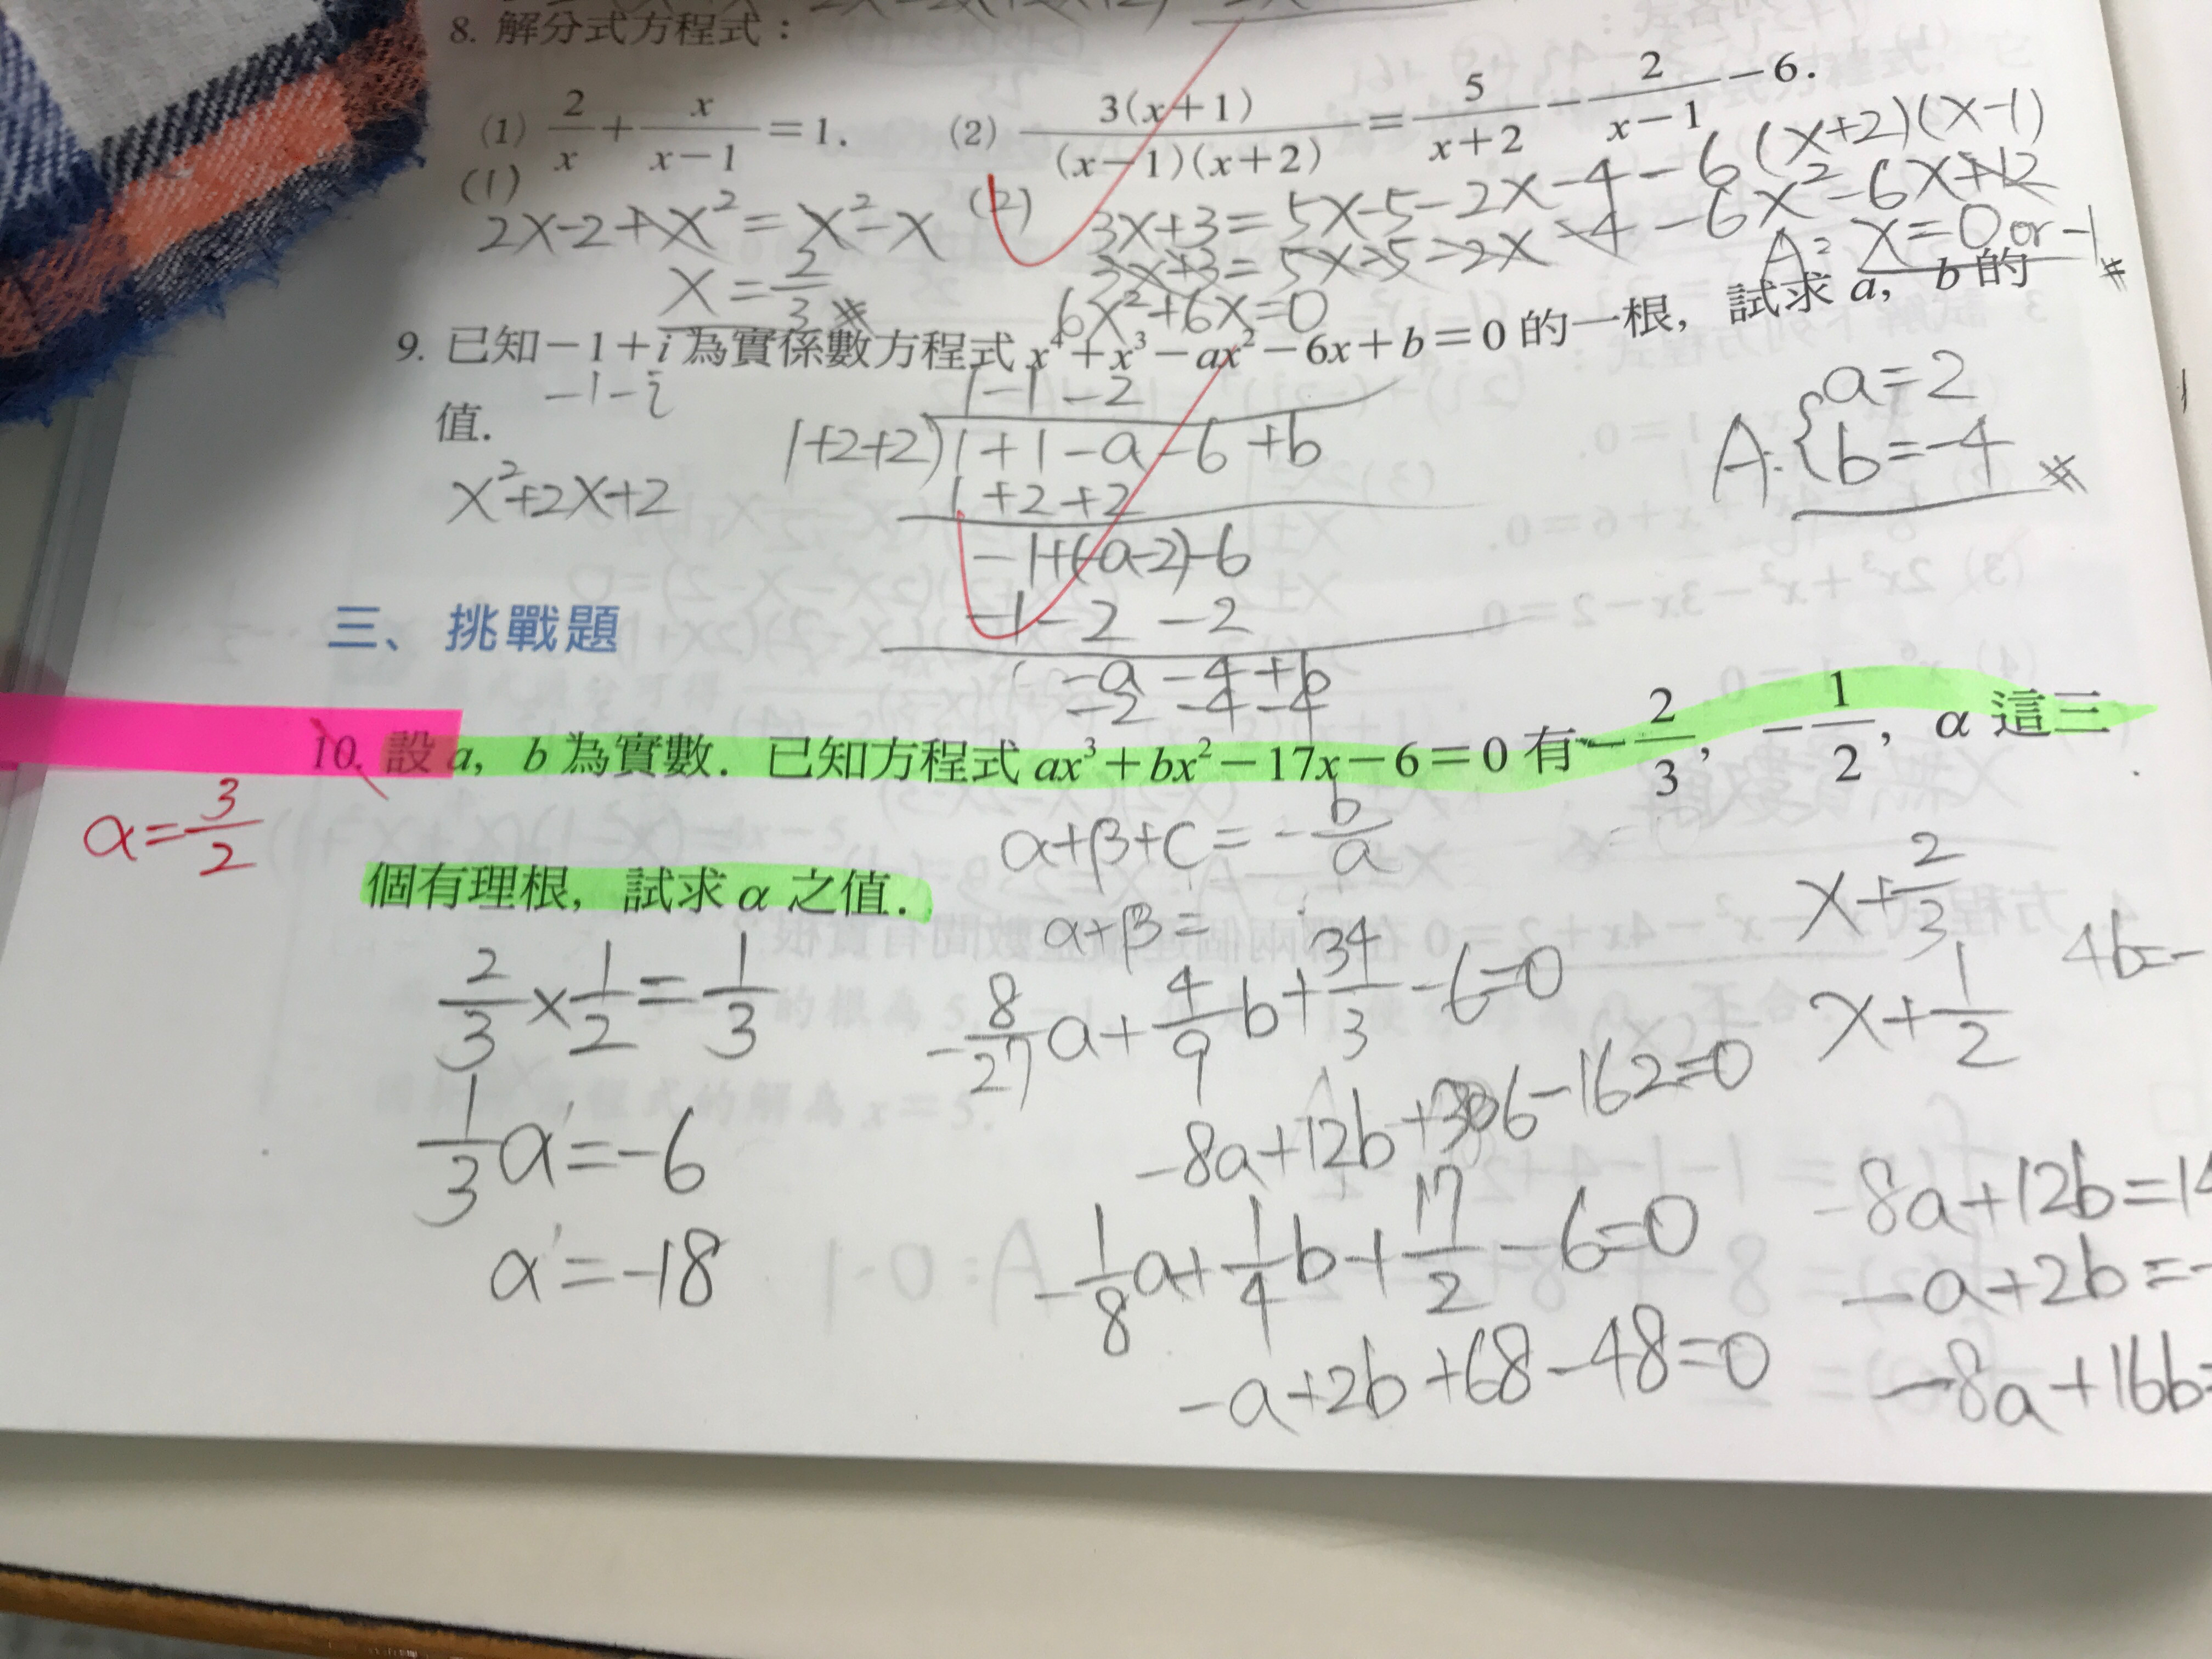 8. 解分式方程式：
(1) 2/x + x/(x−1) = 1. (2) 3(x+1)/((x−1)(x+2)) = 5/(x+2) − 2/(x−1) − 6.
(1) 2x−2+x²=x²−x
x=2/3 ※
(2) 3x+3=5x−5−2x−4−6(x+2)(x−1)
3x+3=5x−5−2x−4−6x²−6x+12
6x²+6x=0
A: x=0 or −1 ※
9. 已知−1+i 為實係數方程式 x⁴+x³−ax²−6x+b=0 的一根，試求 a，b 的
值.
−1−i
x²+2x+2
1−1−2
1+2+2)1+1−a−6+b
1+2+2
−1+(−a−2)−6
−1−2−2
−a−4+b
−2−4−4
A: { a=2
b=−4 ※
三、挑戰題
10. 設 a，b 為實數．已知方程式 ax³+bx²−17x−6=0 有−2/3，−1/2，α 這三
個有理根，試求 α 之值．
α=3/2
α+β+c=−b/a
α+β=
2/3×1/2=1/3
1/3α'=−6
α'=−18
−8/27a+4/9b+34/3−6=0
−8a+12b+306−162=0
−1/8a+1/4b+17/2−6=0
−a+2b+68−48=0
x+2/3
x+1/2
4b=−
−8a+12b=14
−a+2b=−
−8a+16b=